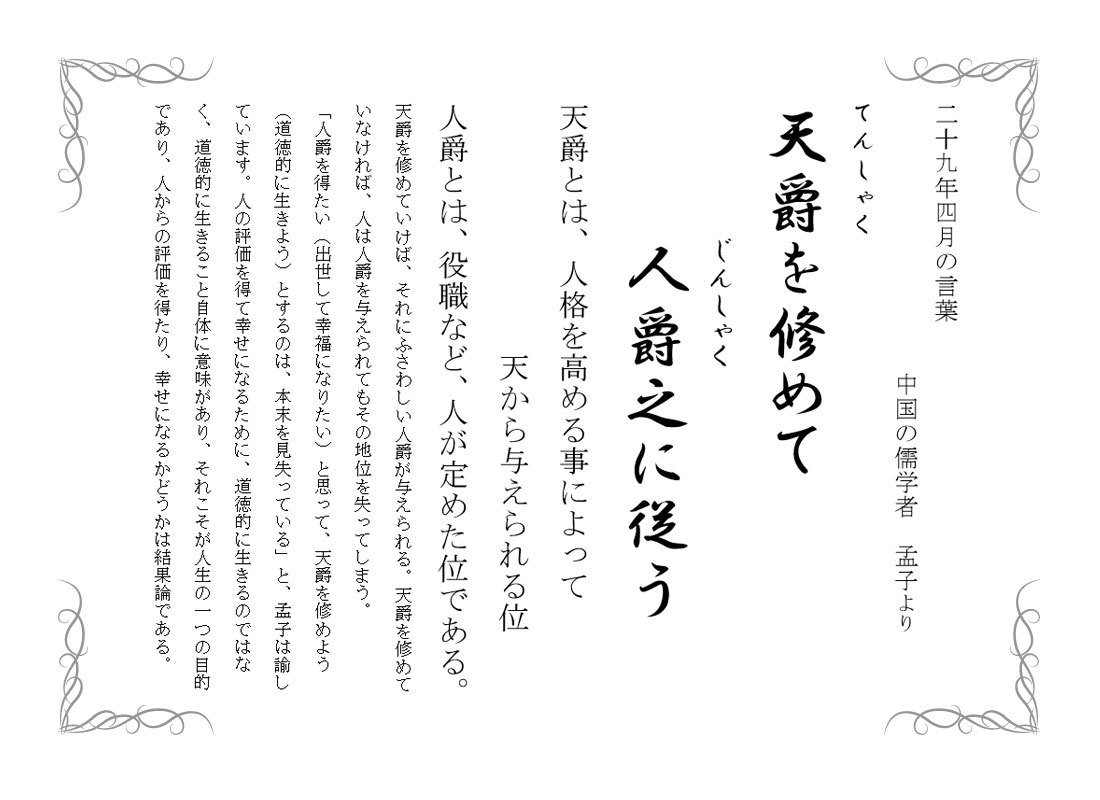 二十九年四月の言葉
中国の儒学者　孟子より
てんしゃく
天爵を修めて
じんしゃく
人爵之に従う
天爵とは、人格を高める事によって
天から与えられる位
人爵とは、役職など、人が定めた位である。
天爵を修めていけば、それにふさわしい人爵が与えられる。天爵を修めて
いなければ、人は人爵を与えられてもその地位を失ってしまう。
「人爵を得たい（出世して幸福になりたい）と思って、天爵を修めよう
（道徳的に生きよう）とするのは、本末を見失っている」と、孟子は諭し
ています。人の評価を得て幸せになるために、道徳的に生きるのではな
く、道徳的に生きること自体に意味があり、それこそが人生の一つの目的
であり、人からの評価を得たり、幸せになるかどうかは結果論である。